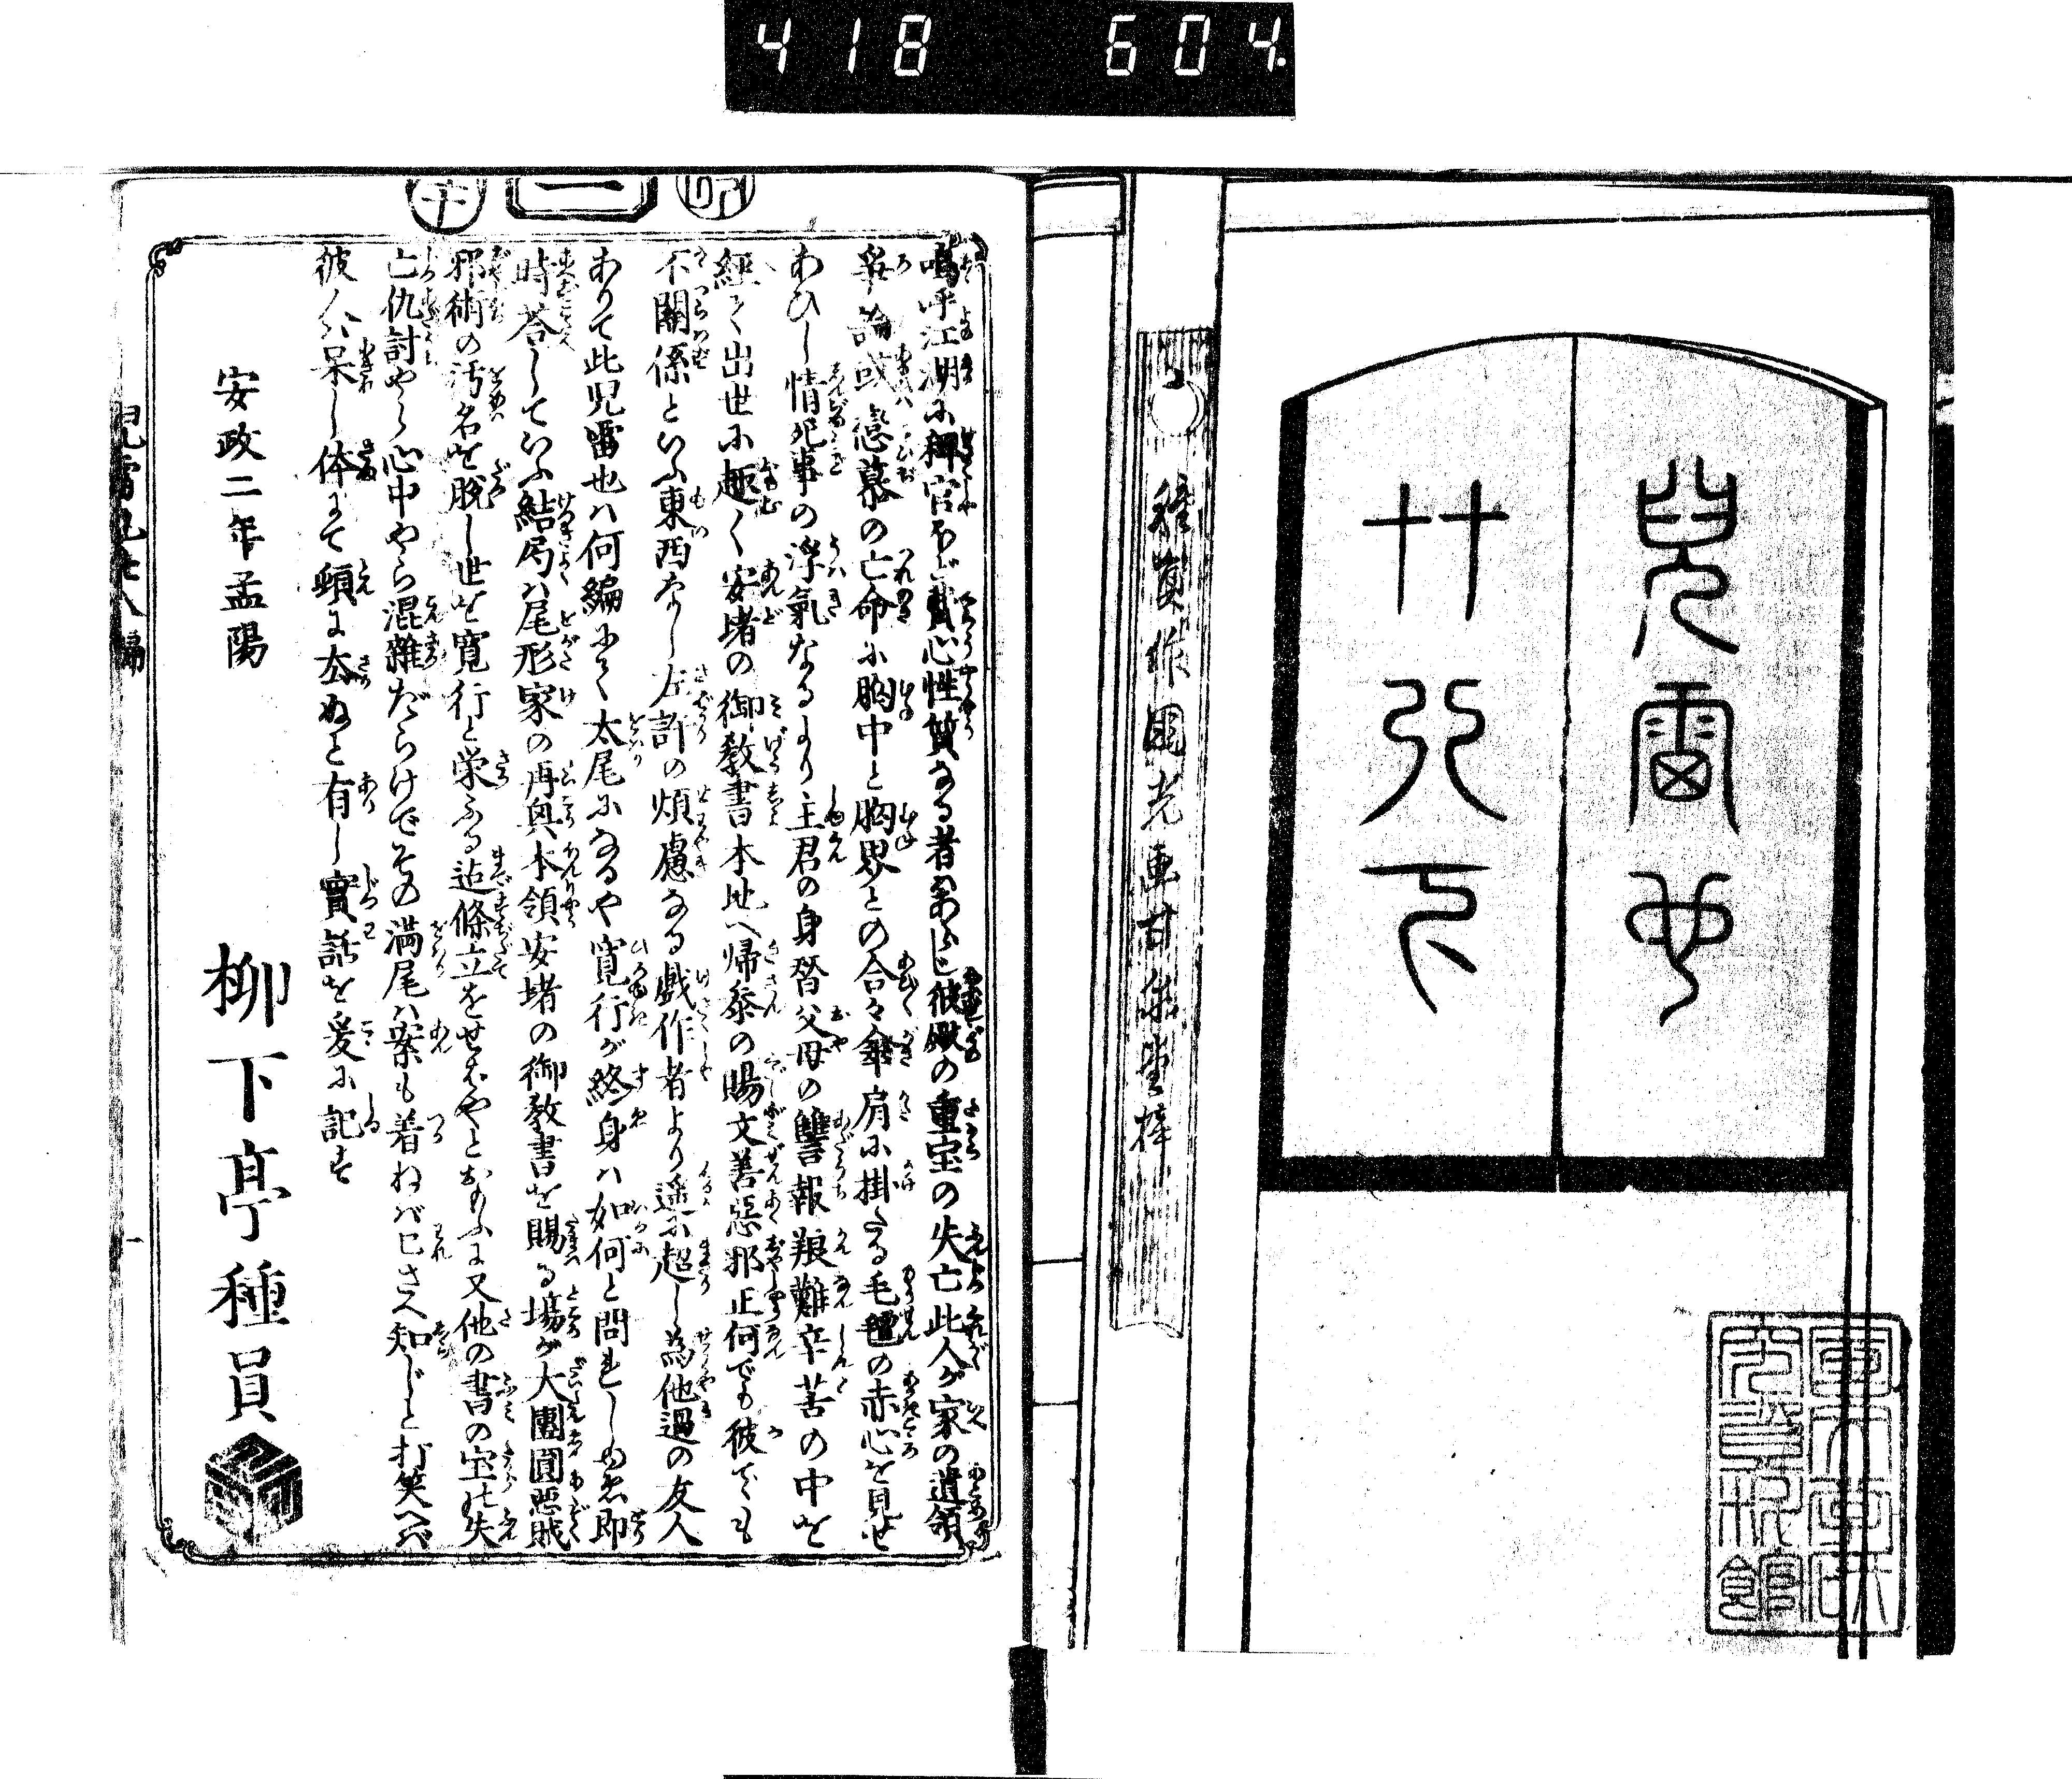 418 604
兒雷也
廿八下
種員作 國光画 甘泉堂梓
東京
館
嗚呼江湖に稗官ほど貧心性質なる者はあらじ彼嶽の重宝の失亡此人が家の遺領
爭論或ハ戀慕の亡命に胸中と胸界との合々傘肩に掛たる毛氈の赤心を見せ
あひし情死事の浮氣なるより主君の身替父母の讐報艱難辛苦の中を
経て出世に趣く安堵の御教書本地へ帰参の賜文善惡邪正何でも彼でも
不關係といふ東西なし左許の煩慮なる戯作者より遥に超し為他過の友人
ありて此児雷也ハ何編にて太尾になるや寛行が終身ハ如何と問れしゆゑ即
時答していふ結局ハ尾形家の再興本領安堵の御教書を賜る場が大團圓惡賊
邪術の汚名を脱し世を寛行と栄ふる迠條立をせばやとおもふに又他の書の宝の失
亡仇討やら心中やら混雜だらけでその満尾ハ案も着ねバ己さへ知じと打笑へバ
彼人ハ呆し体にて頓に去ぬと有し實話を爰に記す
安政二年孟陽
柳下亭種員
児雷也廿八編